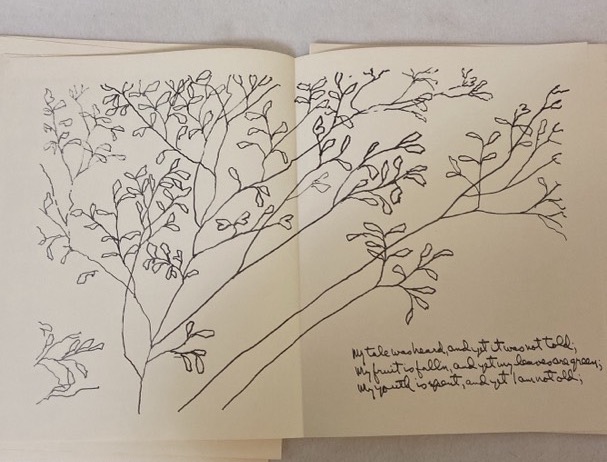 My tale was heard, and yet it was not told;
My fruit is falln, and yet my leaves are green;
My youth is spent, and yet I am not old;